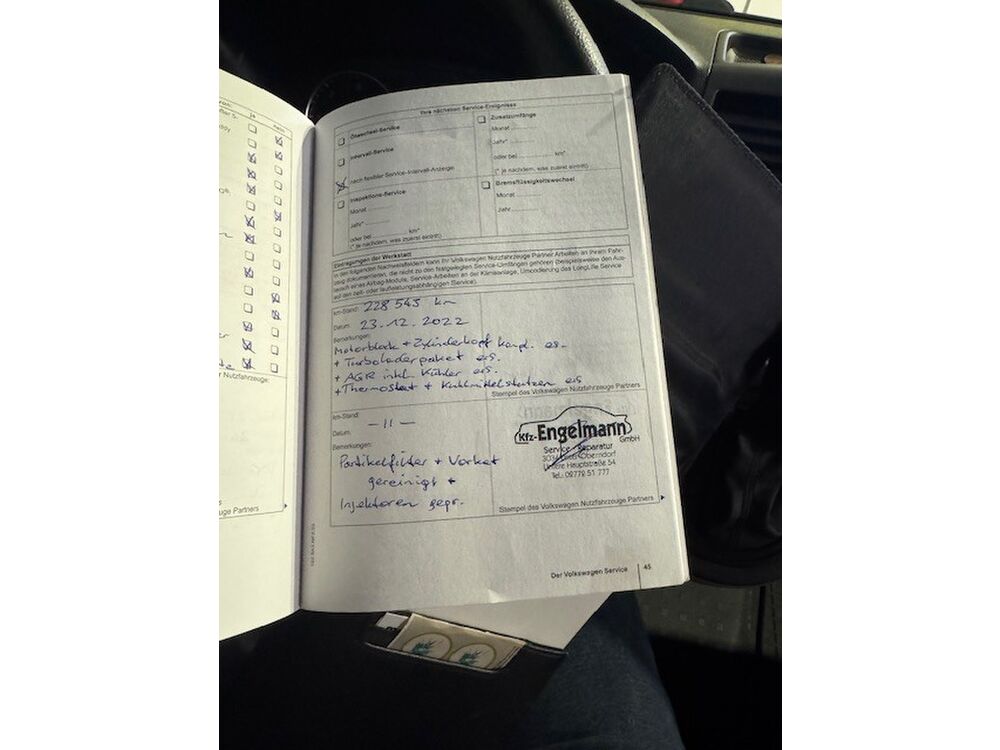 ja
nein
Nutzfahrzeuge:
Partners
Ihre nächsten Service-Ereignisse
Ölwechsel-Service
Intervall-Service
nach flexibler Service-Intervall-Anzeige
Inspektions-Service
Monat
Jahr*
oder bei km*
(* je nachdem, was zuerst eintritt)
Zusatzumfänge
Monat
Jahr*
oder bei km*
(* je nachdem, was zuerst eintritt)
Bremsflüssigkeitswechsel
Monat
Jahr
Eintragungen der Werkstatt
In den folgenden Nachweisfeldern kann Ihr Volkswagen Nutzfahrzeuge Partner Arbeiten an Ihrem Fahr-
zeug dokumentieren, die nicht zu den festgelegten Service-Umfängen gehören (beispielsweise den Aus-
tausch eines Airbag-Moduls, Service-Arbeiten an der Klimaanlage, Umcodierung des LongLife Service
auf den zeit- oder laufleistungsabhängigen Service).
km-Stand: 228 545 km
Datum: 23.12.2022
Bemerkungen:
Motorblock + Zylinderkopf kompl. ers.
+ Turboladerpaket ers.
+ AGR inkl. Kühler ers.
+ Thermostat + Kühlmittelstutzen ers
Stempel des Volkswagen Nutzfahrzeuge Partners
km-Stand:
Datum: -11-
Bemerkungen:
Partikelfilter + Vorkat
gereinigt +
Injektoren gepr.
Kfz-Engelmann GmbH
Service - Reparatur
Oberndorf
Untere Hauptstraße 54
Tel.: 02772 51 777
Stempel des Volkswagen Nutzfahrzeuge Partners
Der Volkswagen Service
45